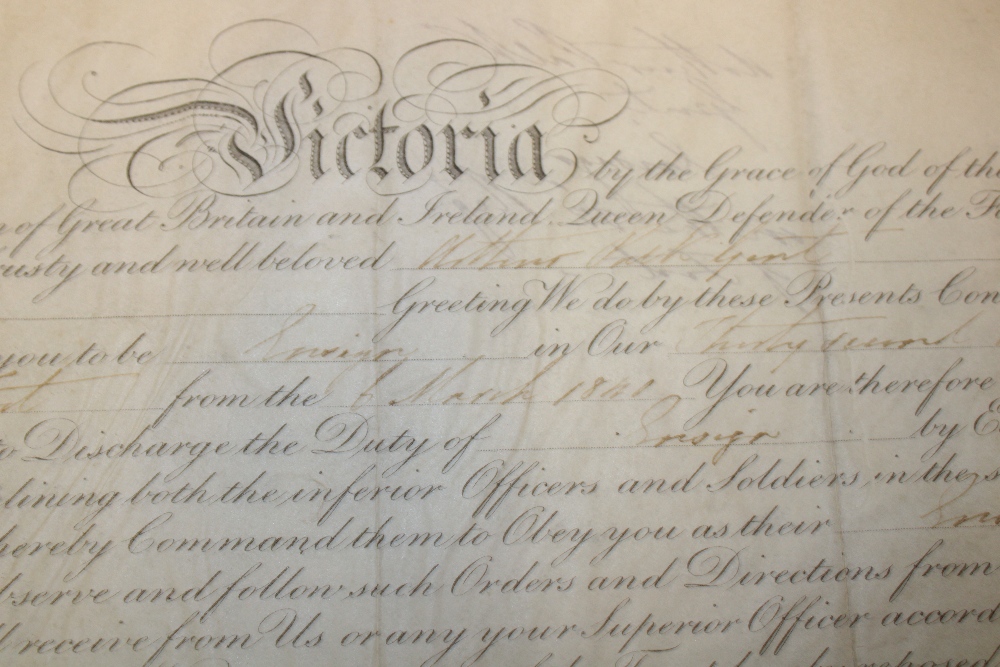 Victoria by the Grace of God of the
of Great Britain and Ireland Queen Defender of the
and well beloved Gent
Greeting We do by these Presents Con
you to be Ensign in Our Thirty second
from the 6 March You are therefore
to Discharge the Duty of Ensign by E
lining both the inferior Officers and Soldiers in the s
hereby Command them to Obey you as their Ens
bserve and follow such Orders and Directions from
l receive from Us or any your Superior Officer accord